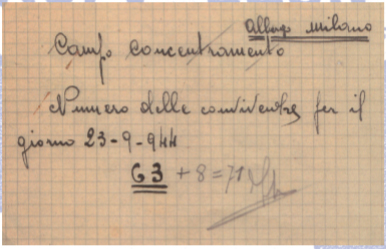 Albergo Milano
Campo Concentramento
Numero delle conviventi per il
giorno 23-9-944
63 + 8 = 71